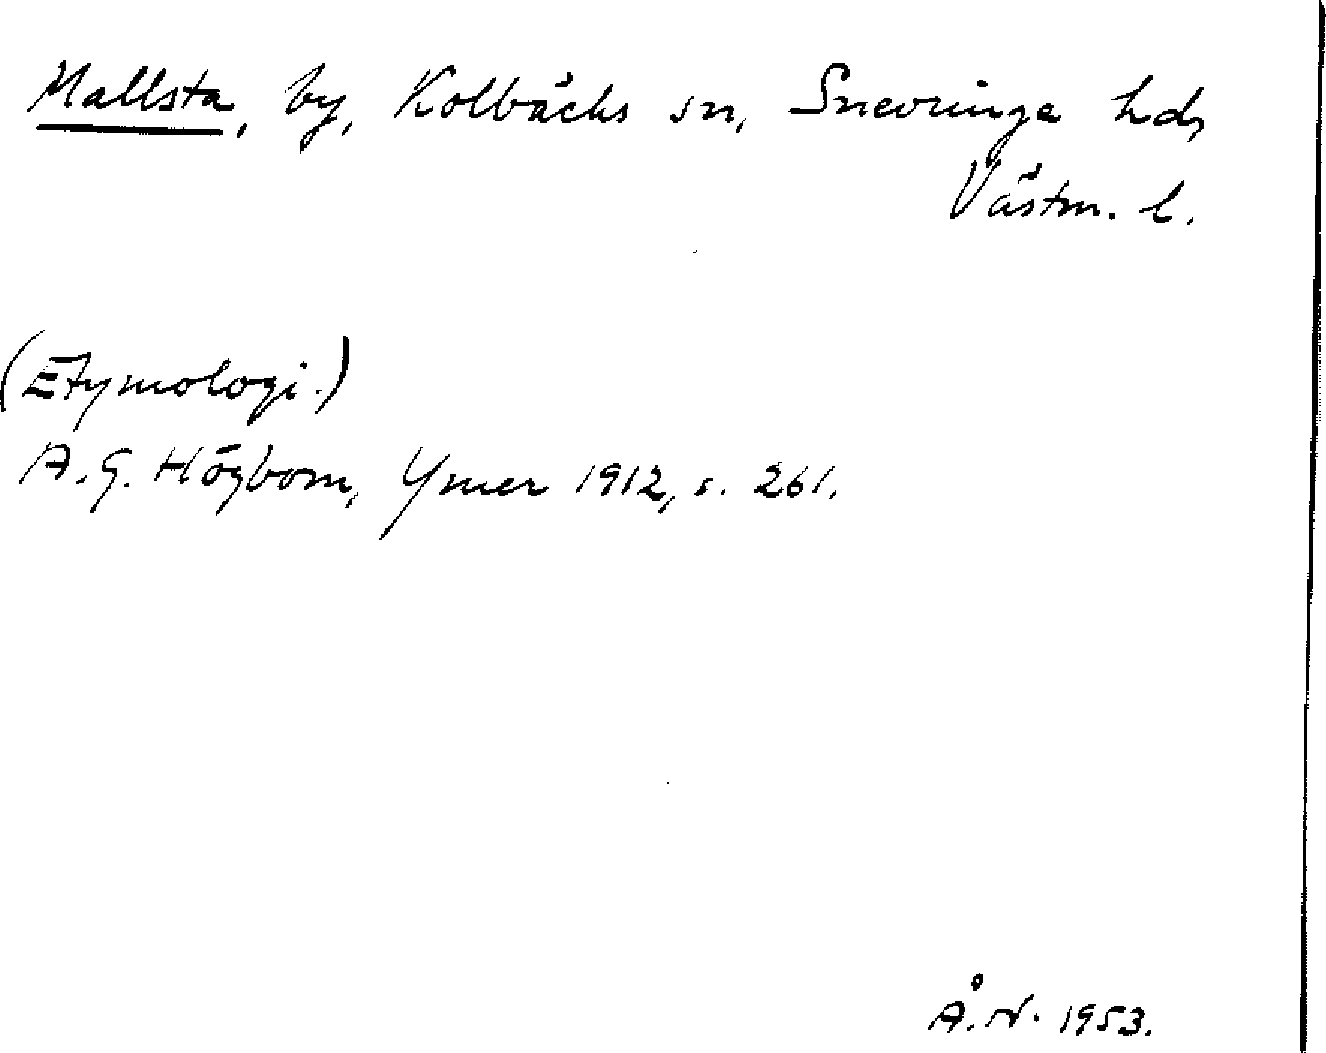 Mallsta, by, Kolbäcks sn, Snevringe hd,
Västm. l.
(Etymologi.)
A.G. Högbom, Ymer 1912, s. 261.
Å.N. 1953.